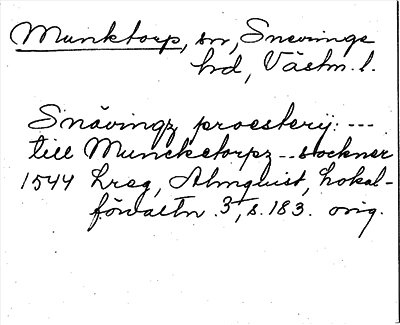 Munktorp, sn, Snevringe
hd, Västm. l.
Snävingz proesterij: ---
till Munckctorpz -- sockner
1544 Lreg, Almquist, Lokal-
förvaltn. 3, s. 183. orig.